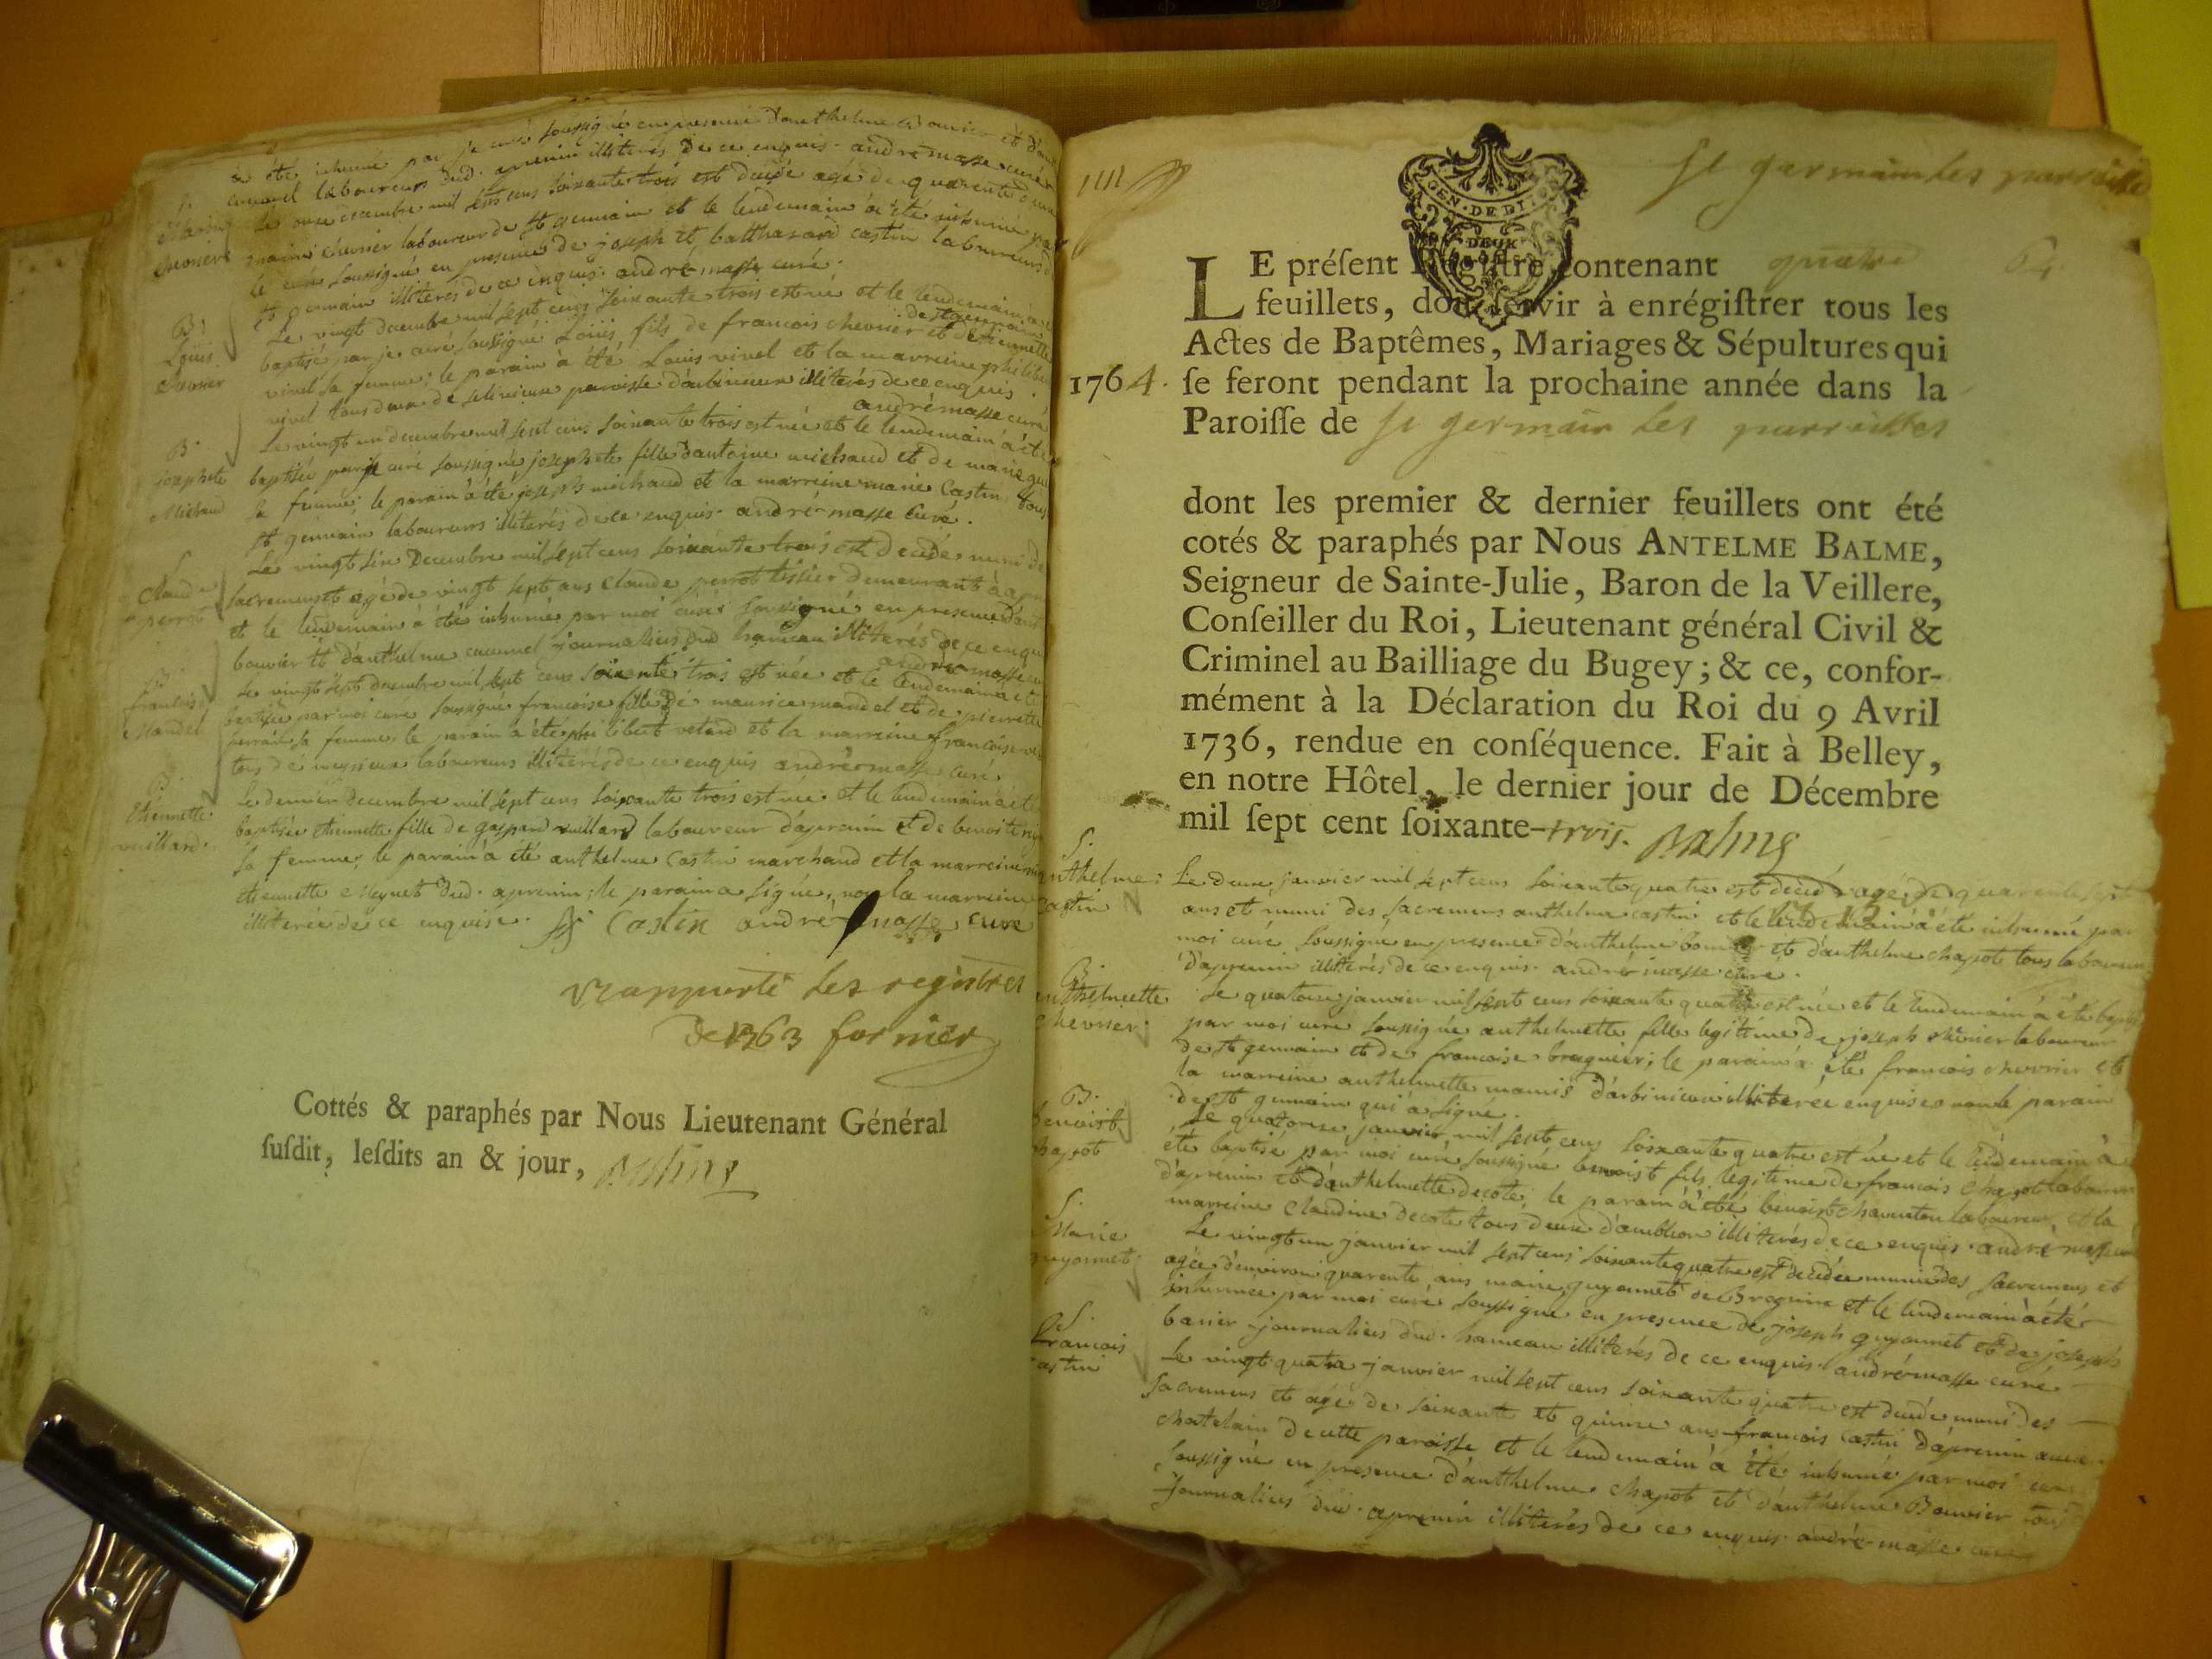 a été inhumé par je curé soussigné en presence d'anthelme
laboureurs dud. aprenin illiterés de ce enquis. andré masse curé
S.
chevrier
Le onze decembre mil sept cens soixante trois est decedé agé de quarente
chevrier laboureur de st germain et le lendemain a été inhumé par
le curé soussigné en presence de joseph et balthazard castin laboureurs de
st germain illiterés de ce enquis. andré masse curé.
B.
Loüis
chevrier
Le vingt decembre mil sept cens soixante trois est né et le lendemain a
de st germain
baptisé par je curé soussigné Loüis fils de francois chevrier et de
vinel sa femme; le parain à été Louis vinel et la marreine
vinel tous deux de paroisse d'arbinieux illiterés de ce enquis.
andré masse curé
B.
josephte
Michaud
Le vingt un decembre mil sept cens soixante trois est née et le lendemain a été
baptisée par je curé soussigné josephte fille d'antoine michaud et de marie
sa femme; le parain a été joseph michaud et la marreine marie Castin tous
st germain laboureurs illiterés de ce enquis. andré masse Curé.
S.
Claude
perrot
Le vingt six Decembre mil sept cens soixante trois est decedé muni de
sacremens et agé de vingt sept ans Claude perrot tissier demeurant à
et le lendemain à été inhumé par moi curé soussigné en presence
bouvier et d'anthelme journaliers dud hameau illiterés de ce enquis
andré masse
B.
francoise
Mandel
Le vingt sept decembre mil sept cens soixante trois est née et le lendemain a été
baptisée par moi curé soussigné francoise fille de maurice mandel et de pierrette
sa femme; le parain à été philibert vetard et la marreine francoise
tous de laboureurs illiterés de ce enquis andré masse curé
B.
Etiennette
vuillard.
Le dernier decembre mil sept cens soixante trois est née et le lendemain a été
baptisée etiennette fille de gaspard vuillard laboureur d'aprenin et de benoite
sa femme; le parain à été anthelme Castin marchand et la marreine
etiennette Meynet dud. aprenin; le parain a signé, non la marreine
illiterée de ce enquise. Castin andré masse curé
rapporté les registres
De 1763 fornier
Cottés & paraphés par Nous Lieutenant Général
ſuſdit, leſdits an & jour, Balme
GEN. DE DI.
DEUX
st germain les parroisses
LE préſent Regiſtre contenant quatre
feuillets, doit ſervir à enrégiſtrer tous les
Actes de Baptêmes, Mariages & Sépultures qui
1764. ſe feront pendant la prochaine année dans la
Paroiſſe de st germain les parroisses
dont les premier & dernier feuillets ont été
cotés & paraphés par Nous ANTELME BALME,
Seigneur de Sainte-Julie, Baron de la Veillere,
Conſeiller du Roi, Lieutenant général Civil &
Criminel au Bailliage du Bugey; & ce, confor-
mément à la Déclaration du Roi du 9 Avril
1736, rendue en conſéquence. Fait à Belley,
en notre Hôtel, le dernier jour de Décembre
mil ſept cent ſoixante-trois. Balme
S.
anthelme
Castin
Le deux janvier mil sept cens soixante quatre est decedé agé de quarente sept
ans et muni des sacremens anthelme castin et le lendemain a été inhumé par
moi curé soussigné en presence d'anthelme bouvier et d'anthelme chapot tous laboureurs
d'aprenin illiterés de ce enquis. andré masse curé.
B.
anthelmette
chevrier
Le quatorze janvier mil sept cens soixante quatre est née et le lendemain à été baptisée
par moi curé soussigné anthelmette fille legitime de joseph chevrier laboureur
de st germain et de francoise breguier; le parain à été francois chevrier et
la marreine anthelmette mamis d'arbinieux illiterée enquise non le parain
de st germain qui à signé.
B.
benoist
chapot
Le quatorze janvier mil sept cens soixante quatre est né et le lendemain à
été baptisé par moi curé soussigné benoist fils legitime de francois chapot laboureur
d'aprenin et d'anthelmette decote; le parain à été benoist laboureur, et la
marreine claudine decote tous deux d'amblon illiterés de ce enquis. andré masse curé
S.
Marie
guyonnet
Le vingt un janvier mil sept cens soixante quatre est decedée munie des sacremens et
agée d'environ quarente ans marie guyonnet de et le lendemain à été
inhumée par moi curé soussigné en presence de joseph guyonnet et de joseph
barier journaliers dud. hameau illiterés de ce enquis. andré masse curé
S.
francois
castin
Le vingt quatre janvier mil sept cens soixante quatre est decedé muni des
sacremens et agé de soixante et quinze ans francois Castin d'aprenin
chatelain de cette paroisse et le lendemain à été inhumé par moi curé
soussigné en presence d'anthelme chapot et d'anthelme Bouvier tous
journaliers dud. aprenin illiterés de ce enquis. andré masse curé